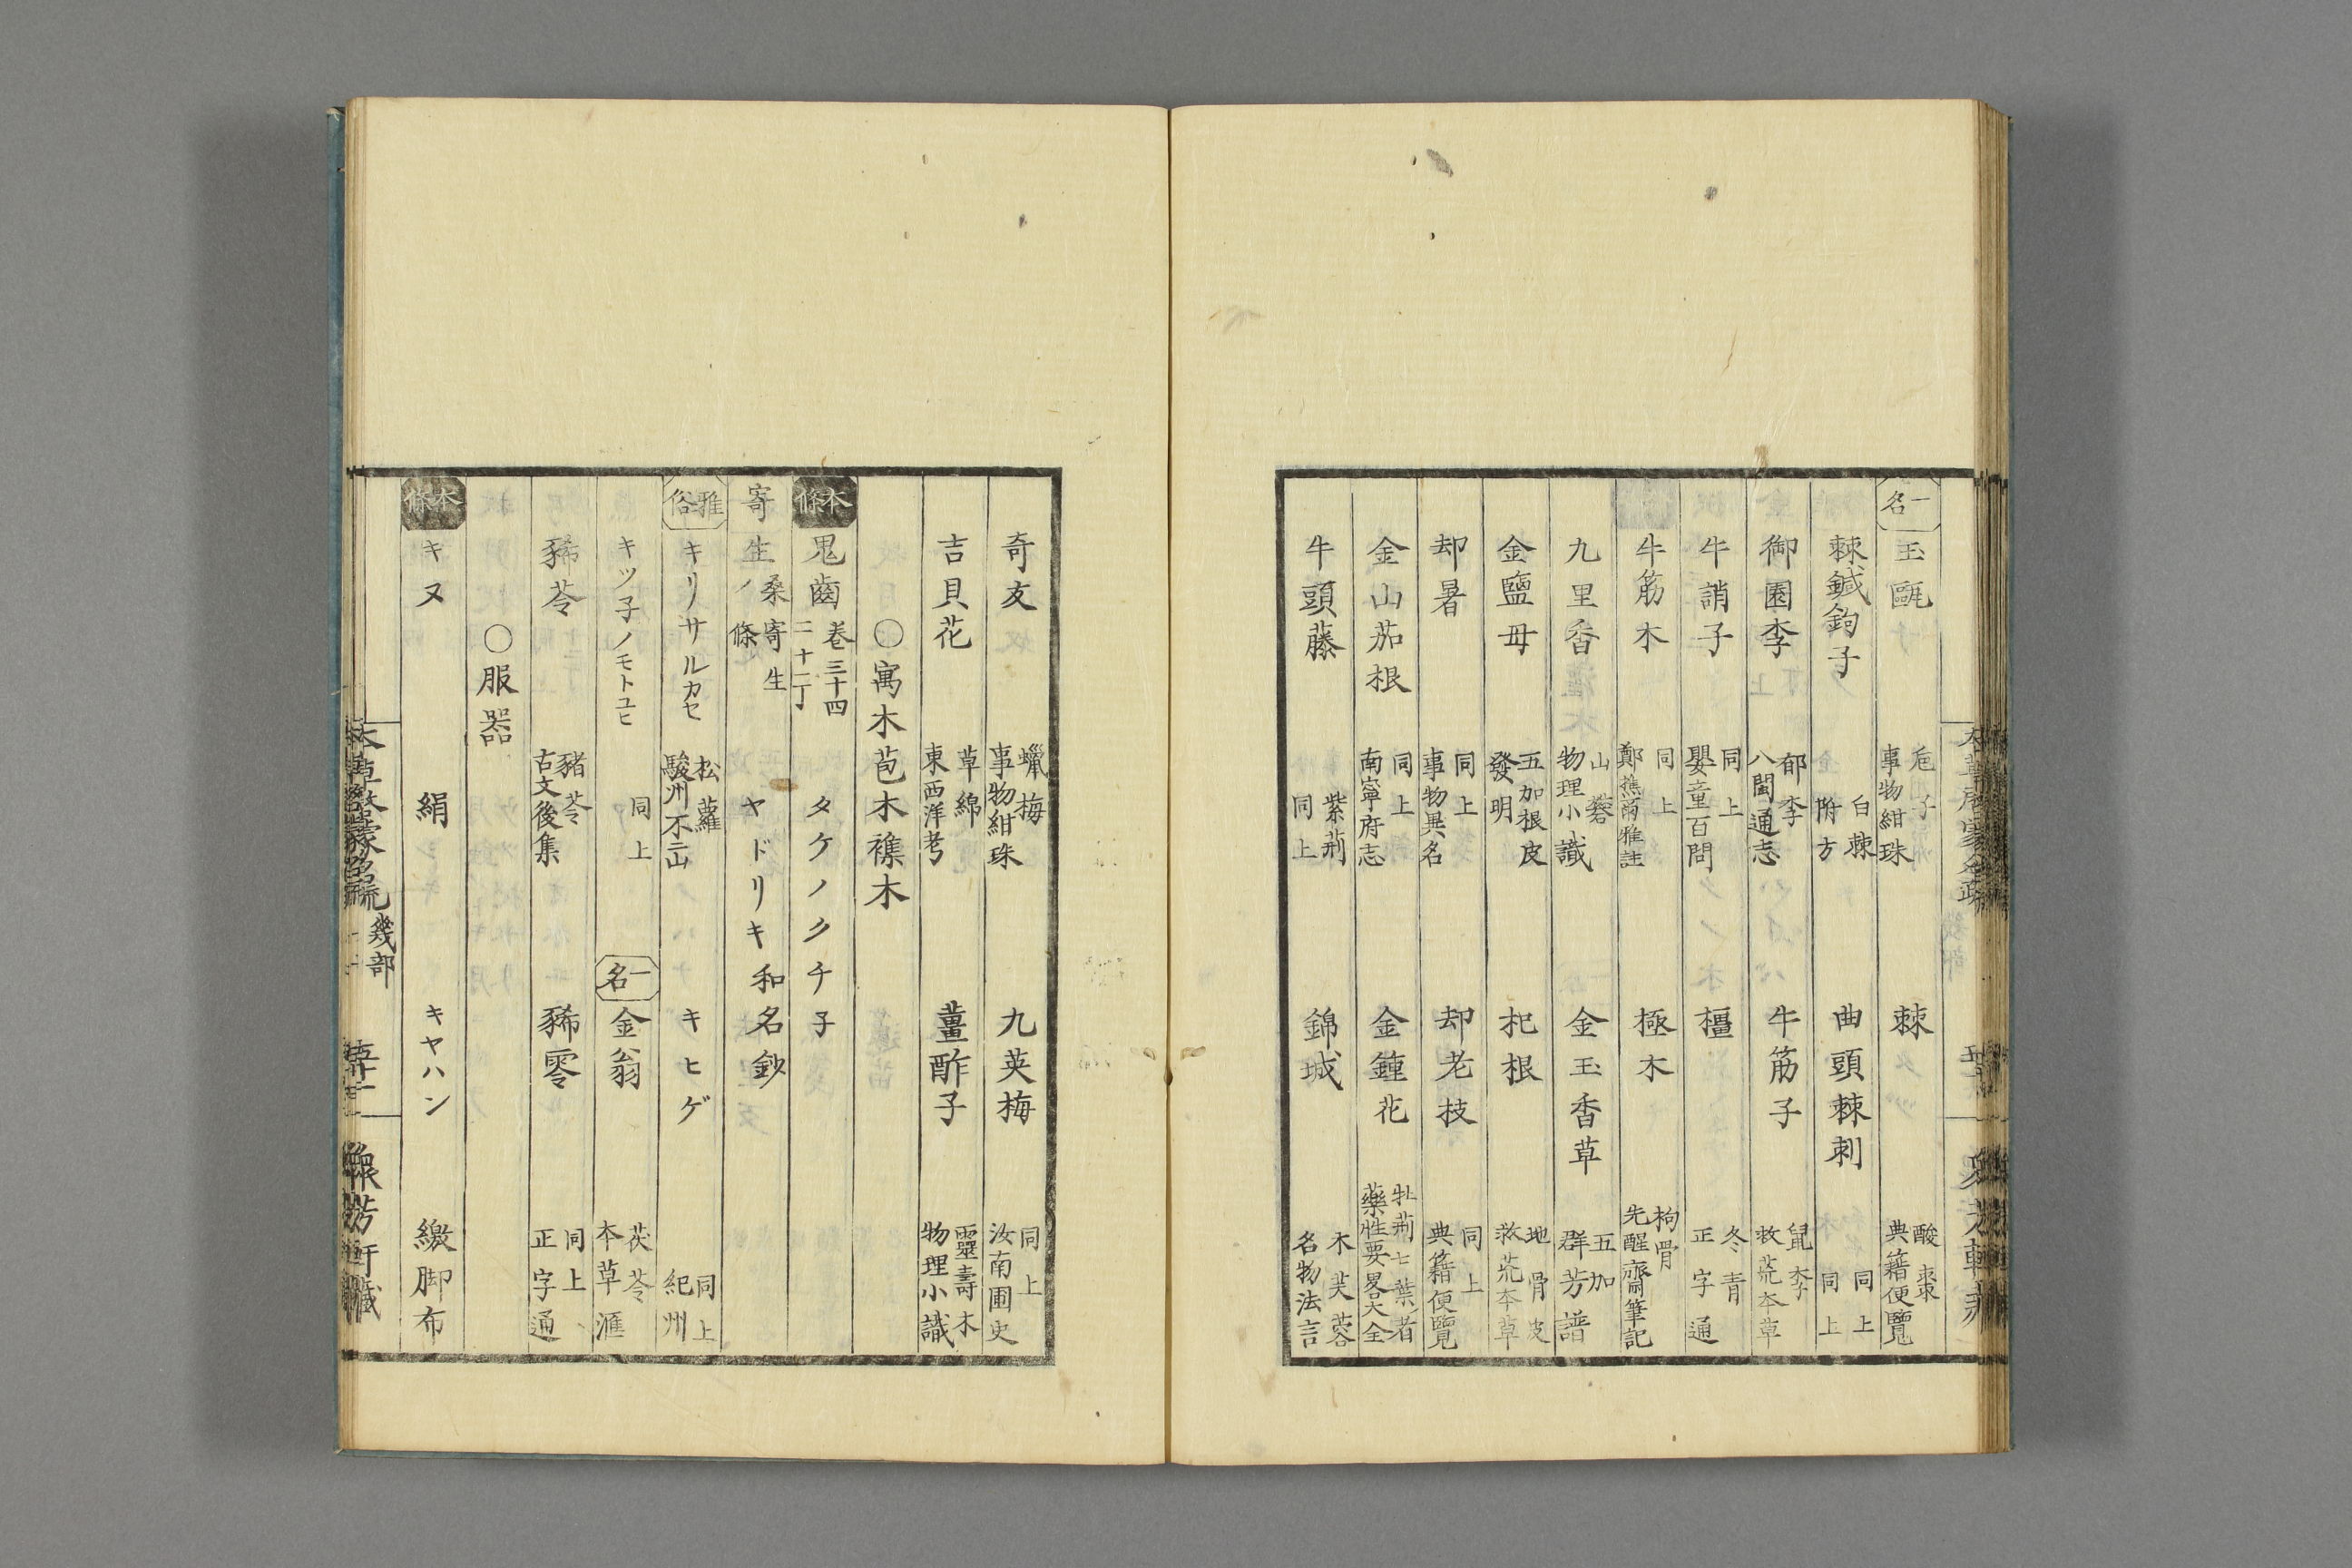 一名 玉甌 巵子 事物紺珠 棘 酸棗 典籍便覽
棘鍼鉤子 白棘 附方 曲頭棘刺 同上 同上
御園李 郁李 八閩通志 牛筋子 鼠李 救荒本草
牛誚子 同上 嬰童百問 橿 冬青 正字通
牛筋木 同上 鄭樵爾雅註 極木 枸骨 先醒齋筆記
九里香 山礬 物理小識 金玉香草 五加 群芳譜
金鹽母 五加根皮 發明 杞根 地骨皮 救荒本草
却暑 同上 事物異名 却老枝 同上 典籍便覽
金山茄根 同上 南寧府志 金鍾花 牡荊七葉者 藥性要畧大全
牛頭藤 紫荊 同上 錦城 木芙蓉 名物法言
奇友 蠟梅 事物紺珠 九英梅 同上 汝南圃史
吉貝花 草綿 東西洋考 薑酢子 靈壽木 物理小識
○寓木苞木襍木
本條 鬼齒 卷三十四 二十二丁 タケノクチ子
寄生ノ條 桑寄生 ヤドリキ 和名鈔
雅俗 キリサルカセ 松蘿 駿州不二山 キヒゲ 同上 紀州
キツ子ノモトユヒ 同上 一名 金翁 茯苓 本草滙
豨苓 豬苓 古文後集 豨零 同上 正字通
○服器
本條 キヌ 絹 キヤハン 繳脚布
幾部